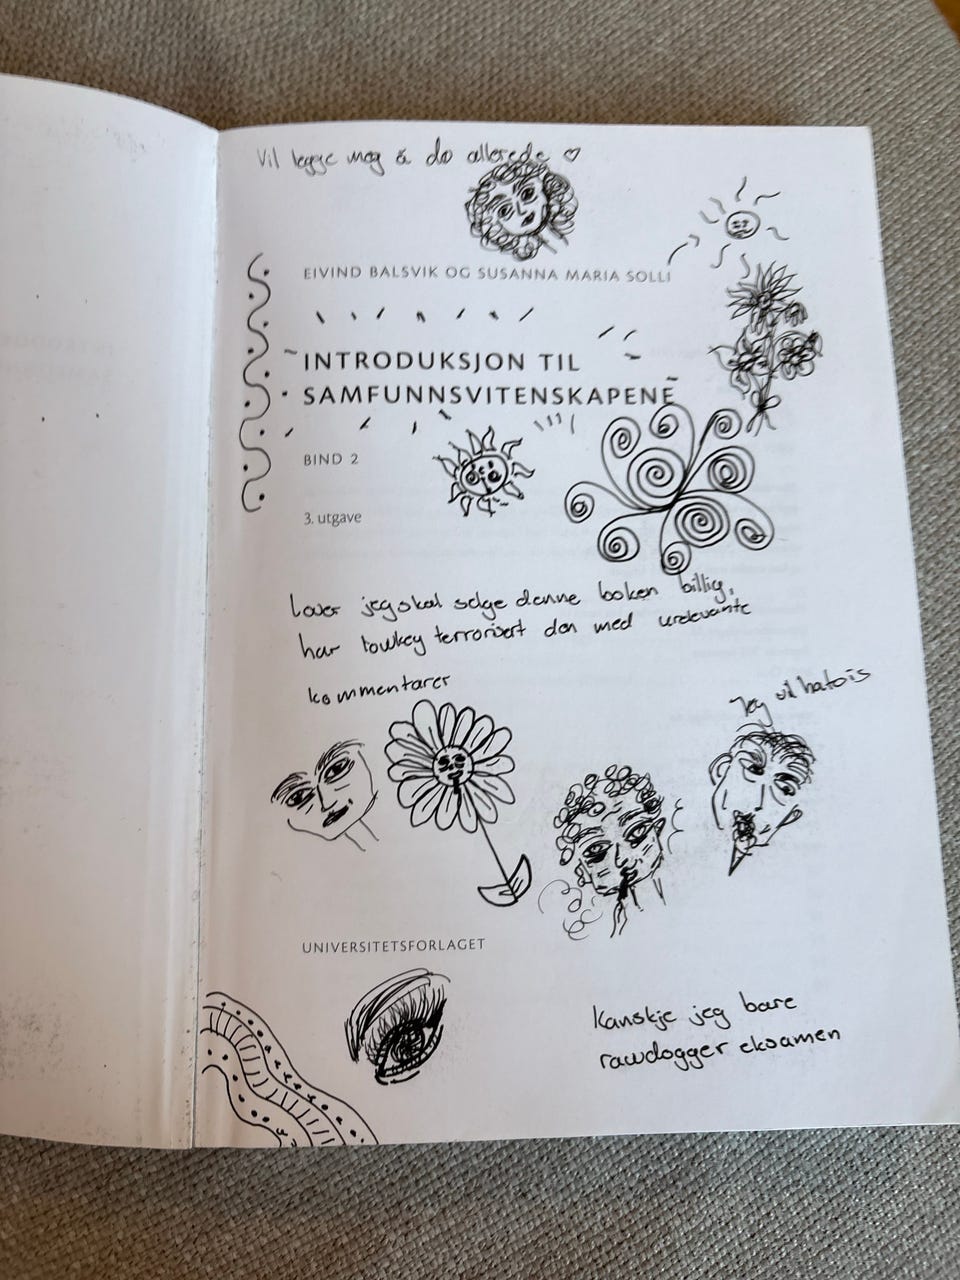 Vil legge meg å dø allerede ♡
EIVIND BALSVIK OG SUSANNA MARIA SOLLI
INTRODUKSJON TIL
SAMFUNNSVITENSKAPENE
BIND 2
3. utgave
Lover jeg skal selge denne boken billig,
har lowkey terrorisert den med urelevante
kommentarer
Jeg vil ha is
UNIVERSITETSFORLAGET
Kanskje jeg bare
rawdogger eksamen